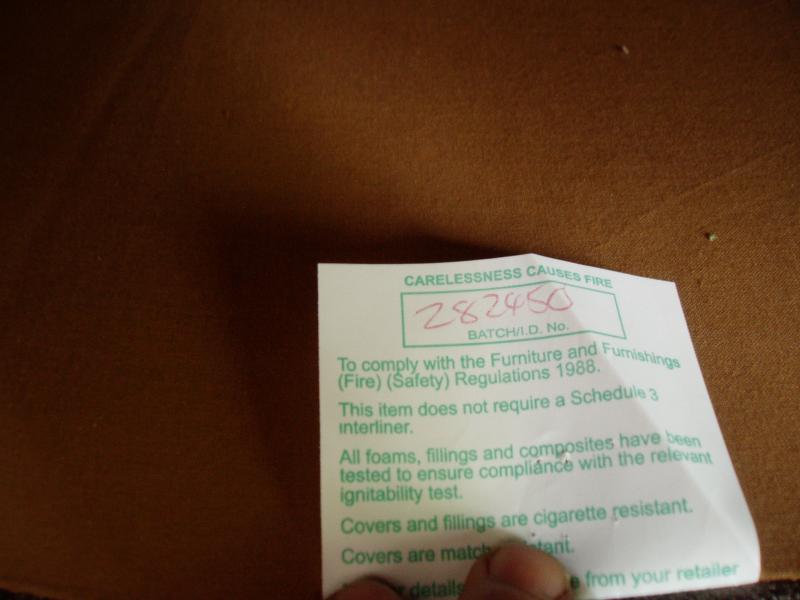 CARELESSNESS CAUSES FIRE
282450
BATCH/I.D. No.
To comply with the Furniture and Furnishings
(Fire) (Safety) Regulations 1988.
This item does not require a Schedule 3
interliner.
All foams, fillings and composites have been
tested to ensure compliance with the relevant
ignitability test.
Covers and fillings are cigarette resistant.
Covers are match
details from your retailer